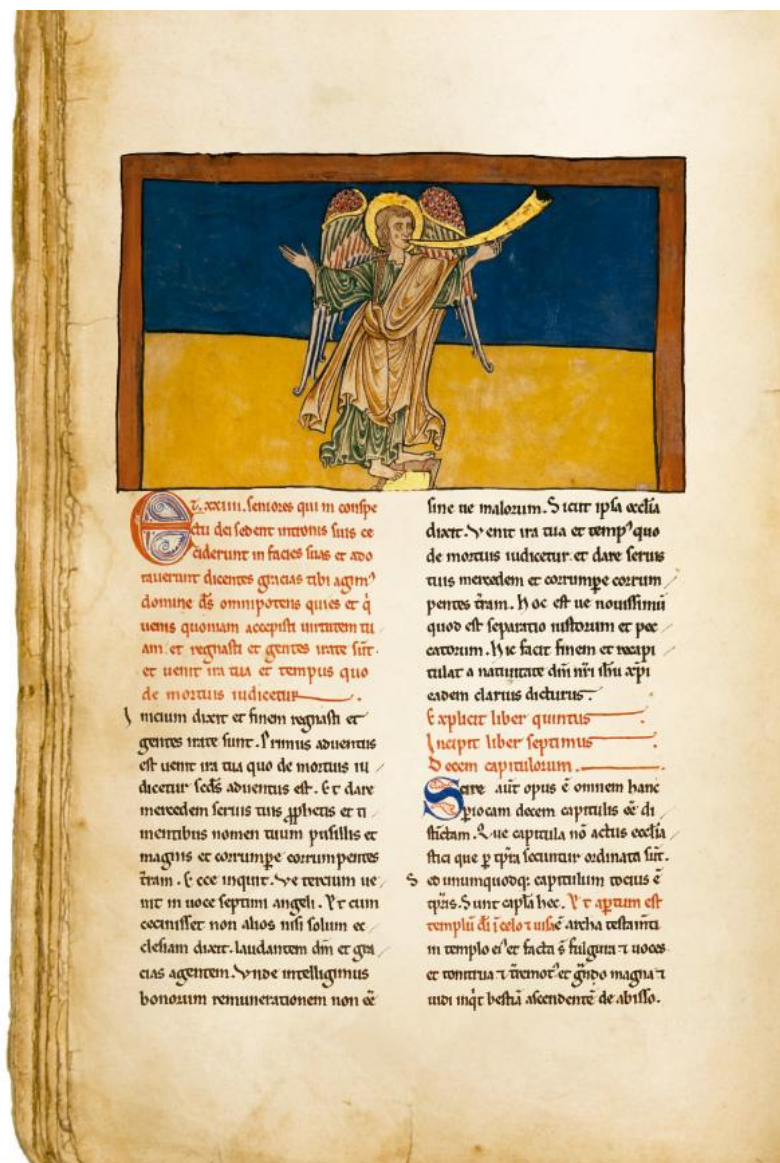 Et .xxiiii. seniores qui in conspe
ctu dei sedent in tronis suis ce
ciderunt in facies suas et ado
raverunt dicentes gracias tibi agimꝰ
domine d̅s omnipotens qui es et q̇
venis quoniam accepisti virtutem tu
am et regnasti et gentes irate su̅t.
et uenit ira tua et tempus quo
de mortuis iudicetur.
Inicium dixit et finem regnasti et
gentes irate sunt. Primus aduentus
est uenit ira tua quo de mortuis iu
dicetur sed̅s aduentus est. Et dare
mercedem seruis tuis ꝓphetis et ti
mentibus nomen tuum pusillis et
magnis et corrumpe̅ corrumpentes
t̅ram. Ecce inquit. Ve tercium ue
nit in uoce septimi angeli. Et cum
cecinisset non alios nisi solum ec
clesiam dixit. laudantem dm̅ et gra
cias agentem. Vnde intelligimus
bonorum remunerationem non e̅e
sine ue malorum. Sicut ipsa eccl̅ia
dixit. Venit ira tua et tempꝰ quo
de mortuis iudicetur. et dare seruis
tuis mercedem et corrumpe̅ corrum
pentes t̅ram. Hoc est ue nouissimu̅
quod est separatio iustorum et pec
catorum. Hic facit finem et recapi
tulat a natiuitate dn̅i nr̅i ih̅u xp̅i
eadem clarius dicturus.
Explicit liber quintus.
Incipit liber septimus.
Decem capitulorum.
Scire aut̅ opus e̅ omnem hanc
p̲iocam decem capitulis e̅e di
sti̅ctam. Que capitula no̅ actus eccl̅ia
stici que p̲ tp̅ra secuntur ordinata su̅t.
Sed unumquodq; capitulum tocius e̅
tp̅ris. Sunt capl̅a hec. Et ap̲tum est
templu̅ d̅i i̅ celo ⁊ uisa e̅ archa testam̅ti
in templo eiꝰ et facta s̅ fulgura ⁊ uoces
et tonitrua ⁊ t̅remotꝰ et g̅ndo magna ⁊
uidi inq̇t bestia̅ ascendente̅ de abisso.